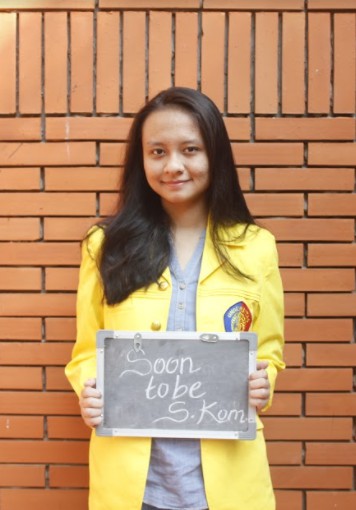 Soon
to be
S.Kom